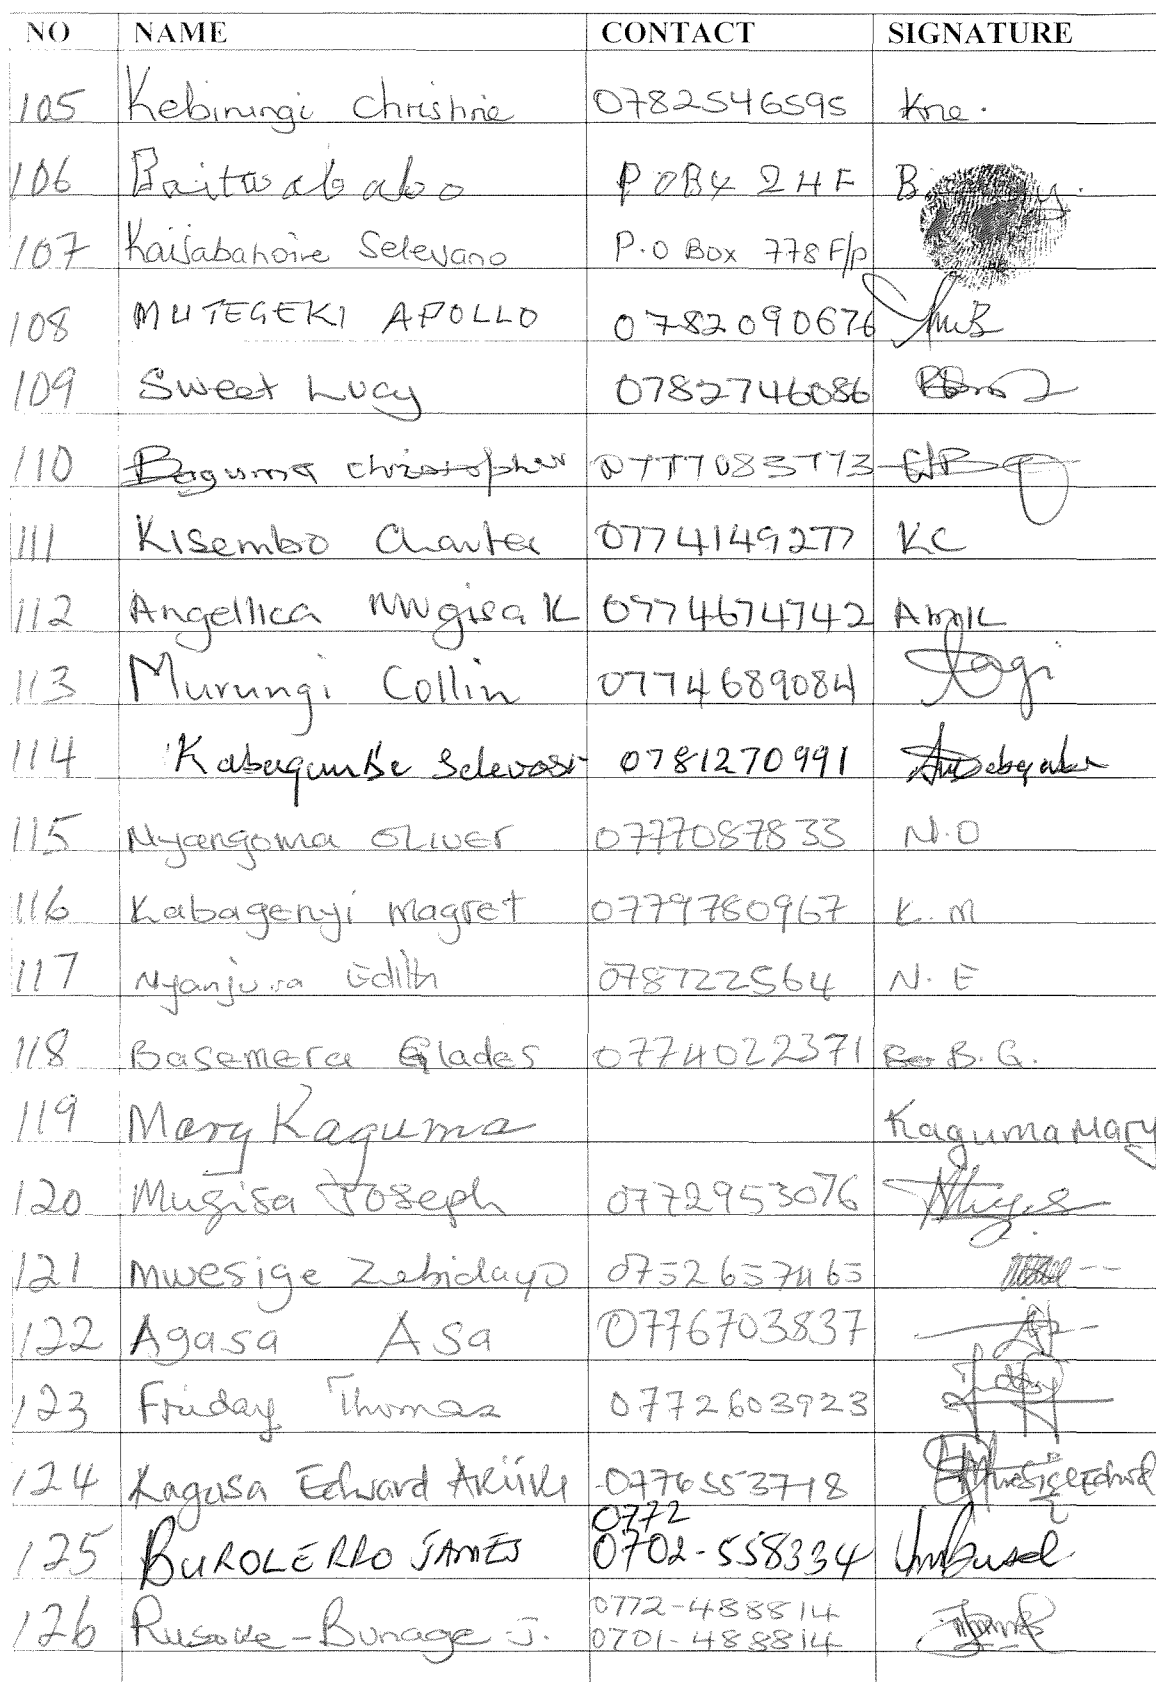 NO NAME CONTACT SIGNATURE
105 Kebirungi Christine 0782546595 Kne.
106 Baitwababo P O BX 24 F
107 Kaijabahoire Selevano P.O Box 778 F/p
108 MUTEGEKI APOLLO 0782090676
109 Sweet Lucy 0782746086
110 Baguma christopher 0777083773
111 Kisembo Charles 0774149277 KC
112 Angellica Mugisa K 0774674742 AMK
113 Murungi Collin 0774689084
114 Kabagambe Selevasi 0781270991
115 Nyangoma OLIVER 0777087833 N.O
116 Kabagenyi Magret 0779780967 K.M
117 Nyanjura Edith 078722564 N.E
118 Basemera Glades 0774022371 B.G.
119 Mary Kaguma Kaguma Mary
120 Mugisa Joseph 0772953076
121 Mwesige Zebidayo 0752657465
122 Agasa Asa 0776703837
123 Friday Thomas 0772603923
124 Kagusa Edward Akiiki 0776553718
0772
125 JAMES 0702-558334
126 Rusoke-Bunage J. 0772-488814
0701-488814